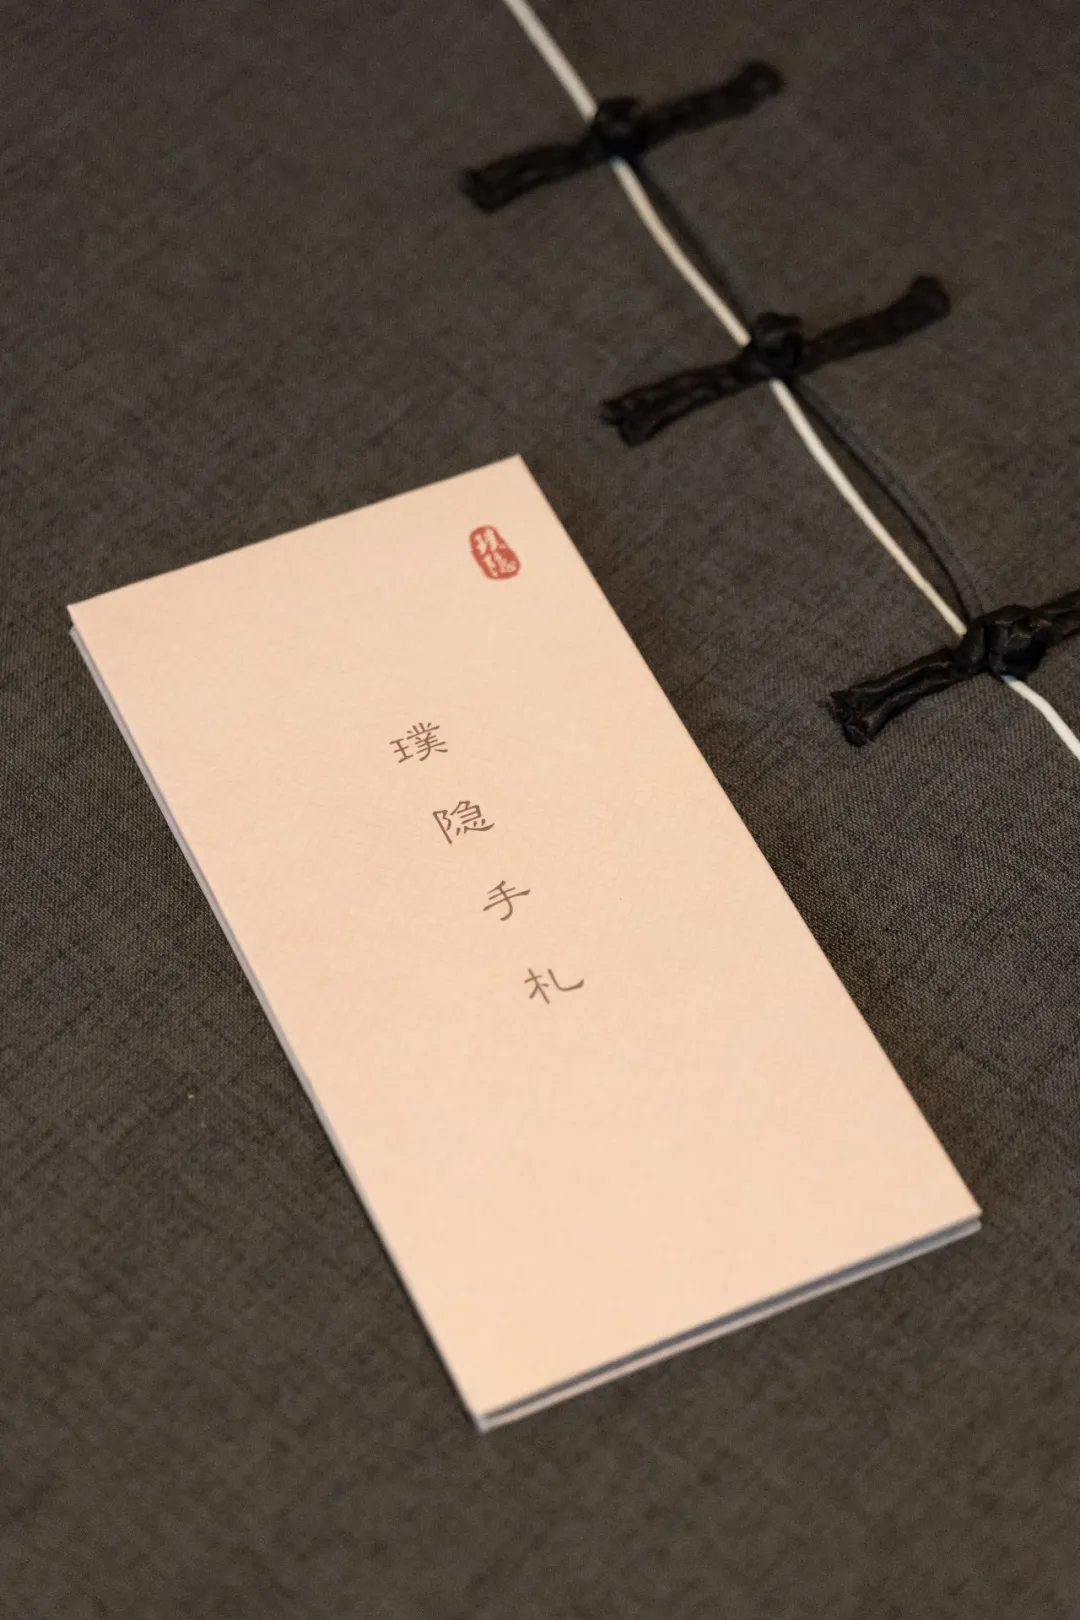 璞隐
璞隐手札